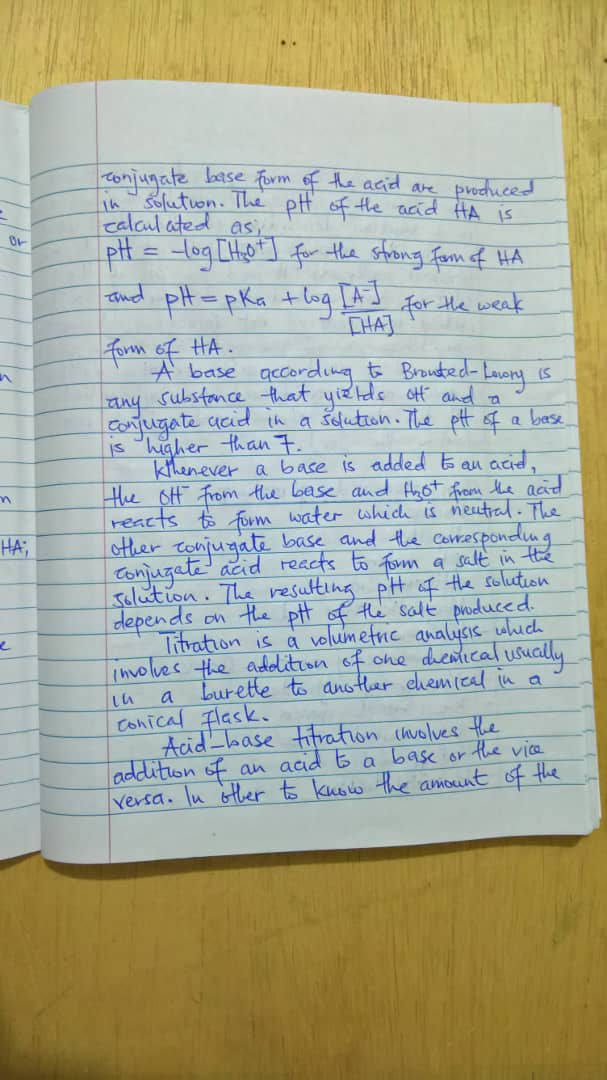 or
n
n
HA;
e
conjugate base form of the acid are produced
in solution. The pH of the acid HA is
calculated as;
pH = -log[H₃O⁺] for the strong form of HA
and pH = pKa + log [A⁻]/[HA] for the weak
form of HA.
A base according to Bronsted-Lowry is
any substance that yields OH⁻ and a
conjugate acid in a solution. The pH of a base
is higher than 7.
Whenever a base is added to an acid,
the OH⁻ from the base and H₃O⁺ from the acid
reacts to form water which is neutral. The
other conjugate base and the corresponding
conjugate acid reacts to form a salt in the
solution. The resulting pH of the solution
depends on the pH of the salt produced.
Titration is a volumetric analysis which
involves the addition of one chemical usually
in a burette to another chemical in a
conical flask.
Acid-base titration involves the
addition of an acid to a base or the vice
versa. In other to know the amount of the